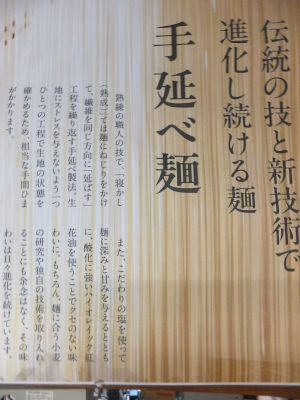 伝統の技と新技術で
進化し続ける麺
手延べ麺
熟練の職人の技で、「寝かし
（熟成）」ては麺にねじりをかけ
て、繊維を同じ方向に「延ばす」
工程を繰り返す手延べ製法。生
地にストレスを与えないよう一つ
ひとつの工程で生地の状態を
確かめるため、相当な手間ひま
がかかります。
また、こだわりの塩を使って
麺に深みと甘みを与えるととも
に、酸化に強いハイオレイック紅
花油を使うことでクセのない味
わいに。もちろん、麺に合う小麦
の研究や独自の技術を取り入れ
ることにも余念はなく、その味
わいは日々進化を続けています。